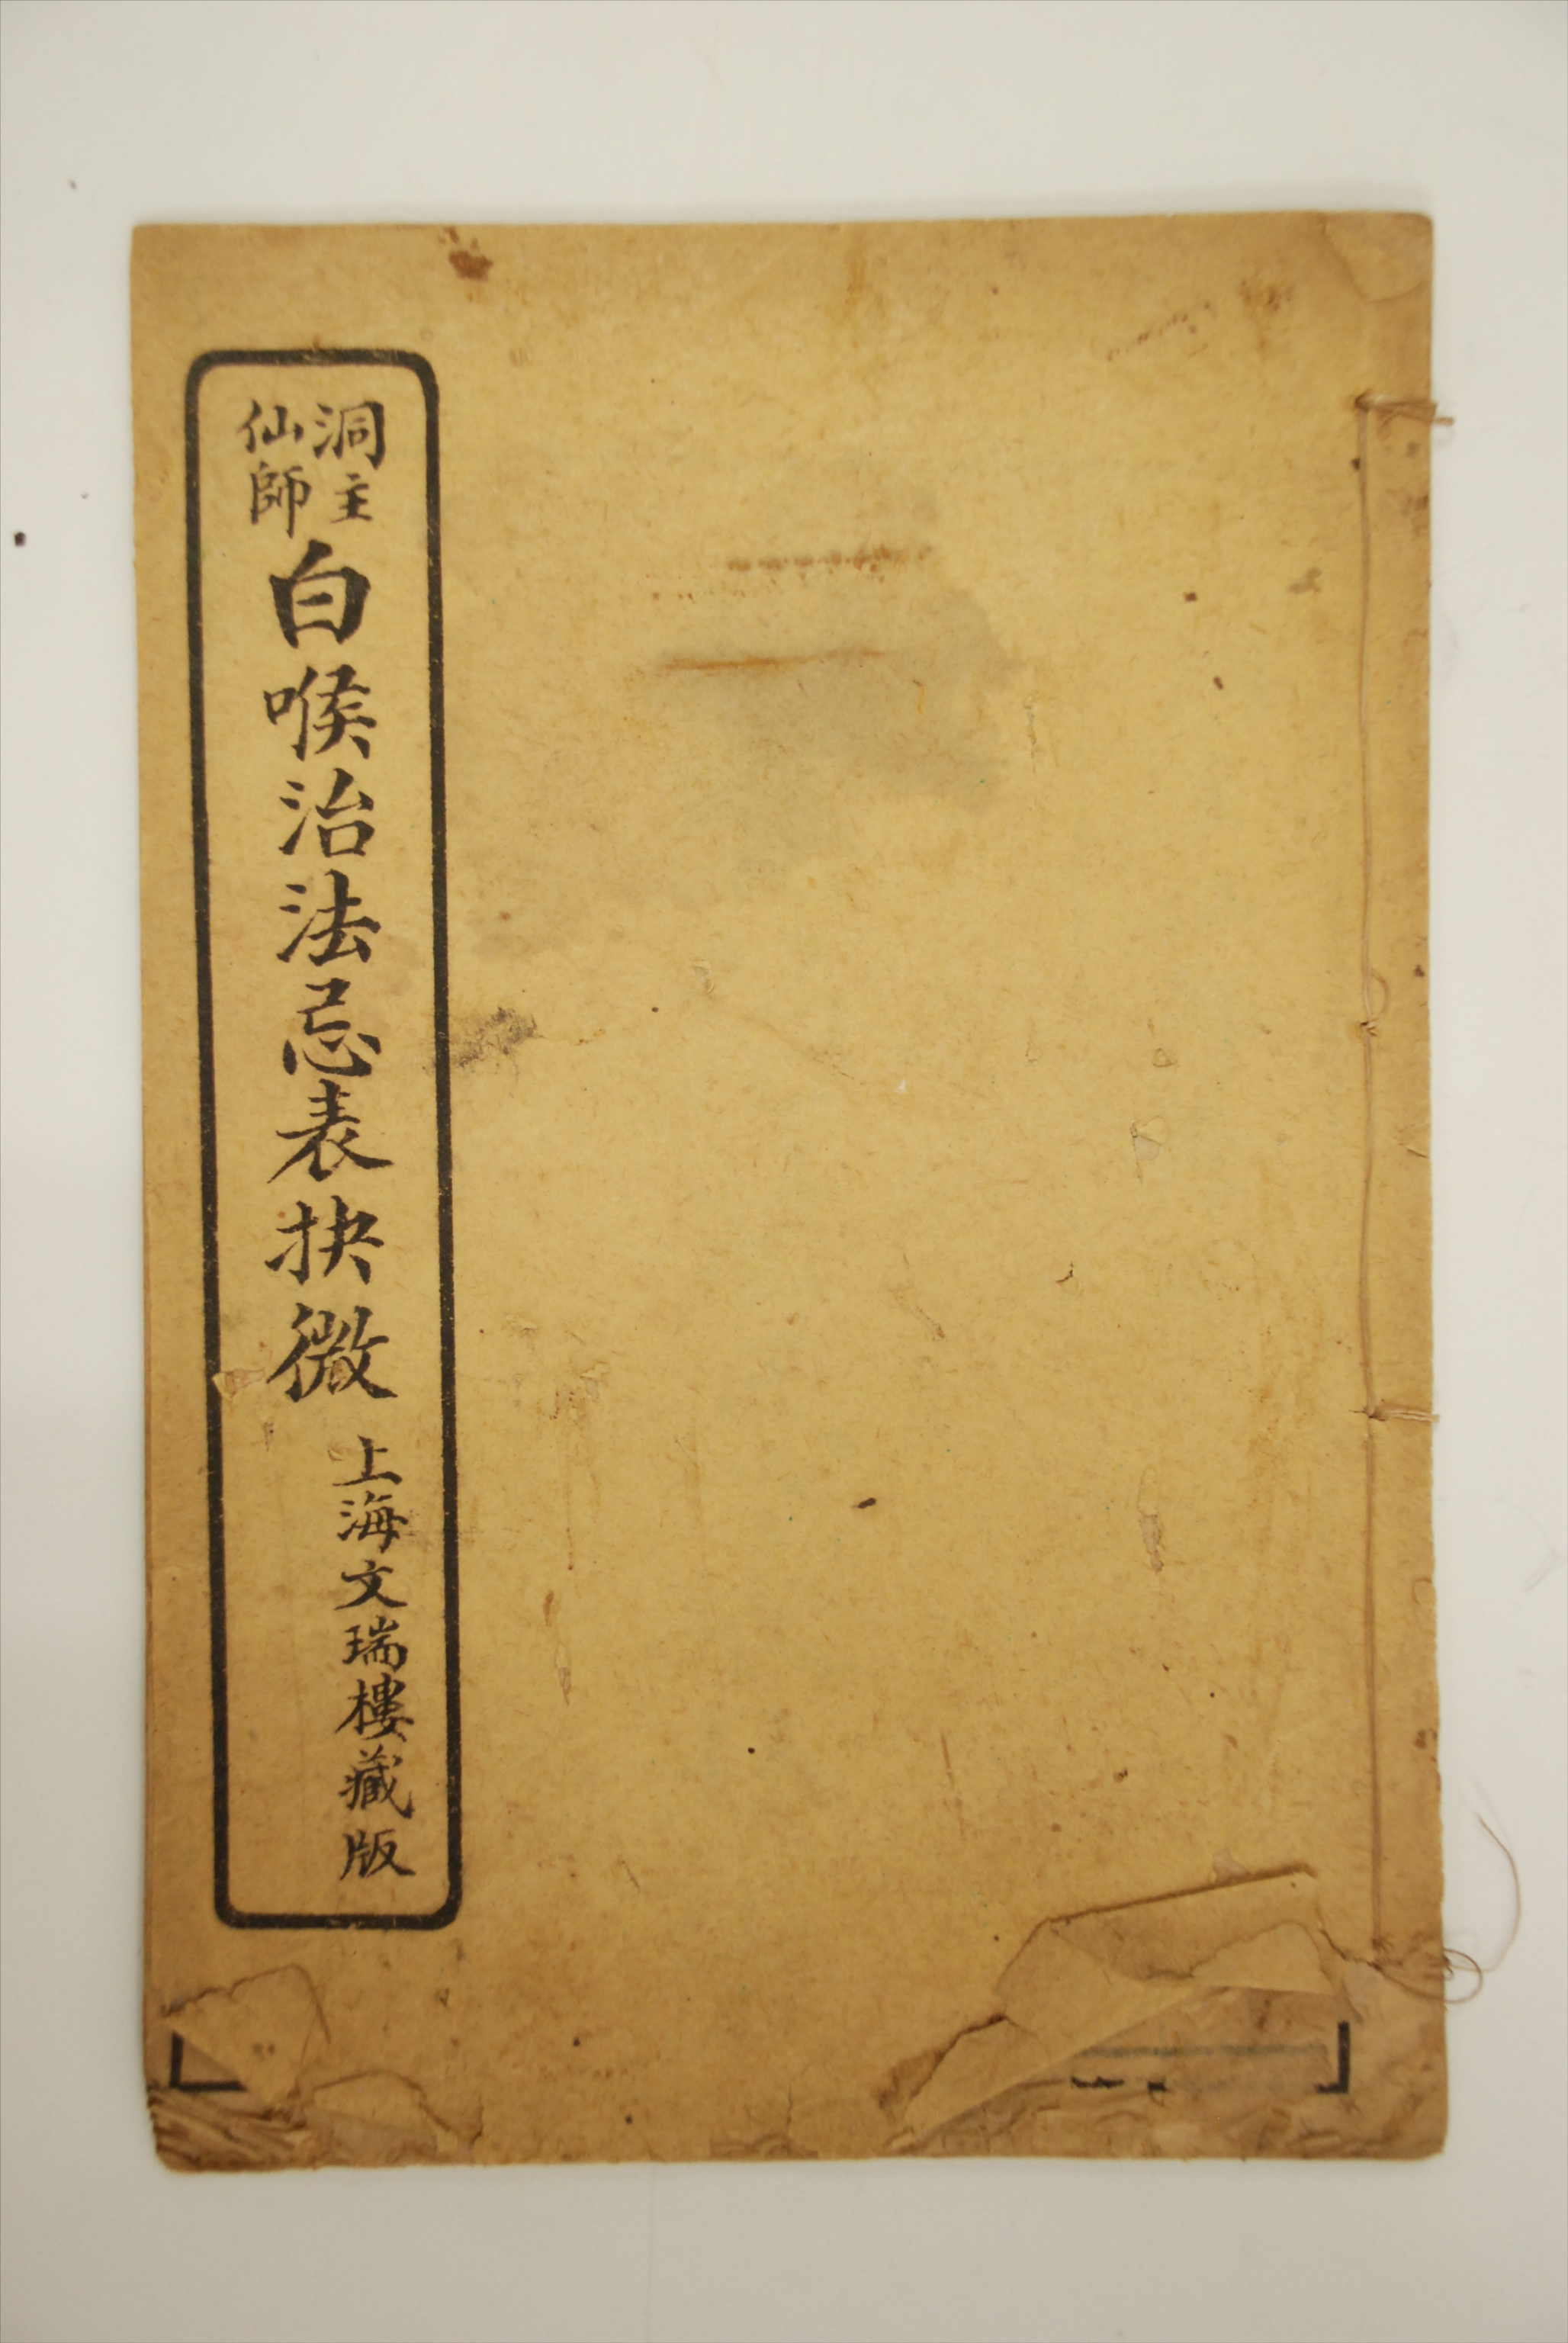 洞主
仙師
白喉治法忌表抉微
上海文瑞樓藏版